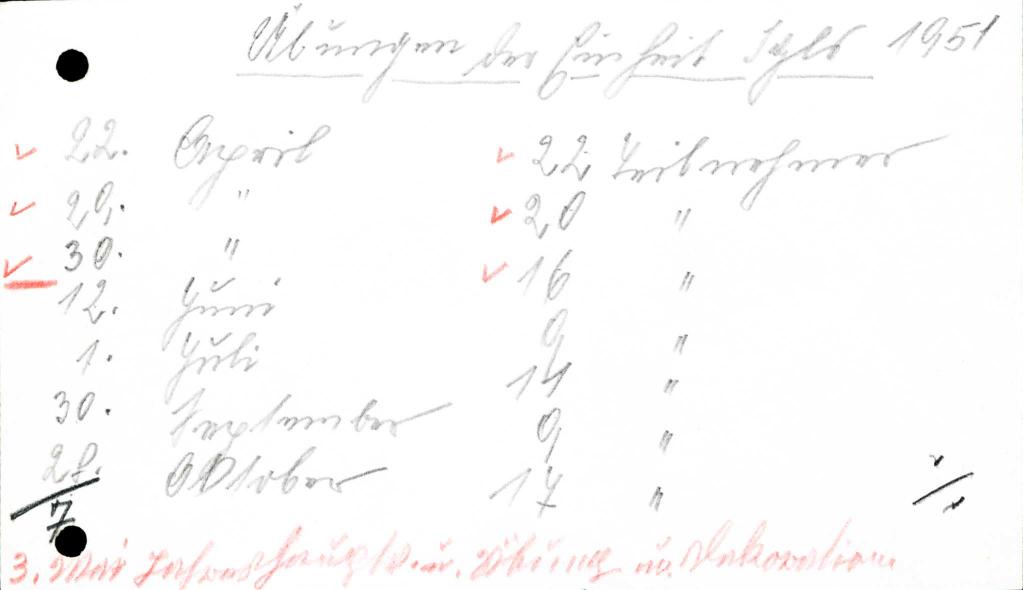 Übungen der Einheit 1951
22. April 22 Teilnehmer
29. " 20 "
30. " 16 "
12. Juni 9 "
1. Juli 14 "
30. September 9 "
28. Oktober 17 "
7
3. Mai Jahreshauptv. u. Übung u. Dekoration